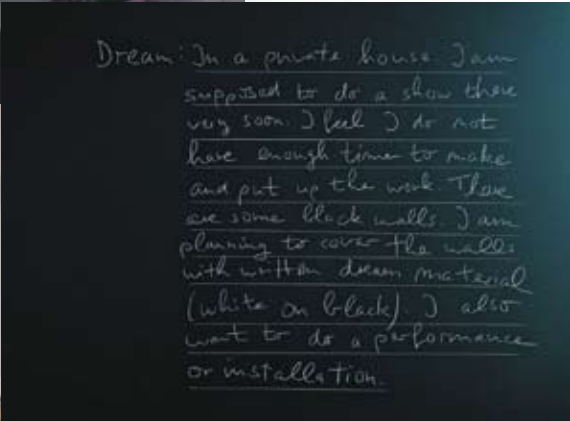 Dream: In a private house. I am
supposed to do a show there
very soon. I feel I do not
have enough time to make
and put up the work. There
are some black walls. I am
planning to cover the walls
with written dream material
(white on black). I also
want to do a performance
or installation.